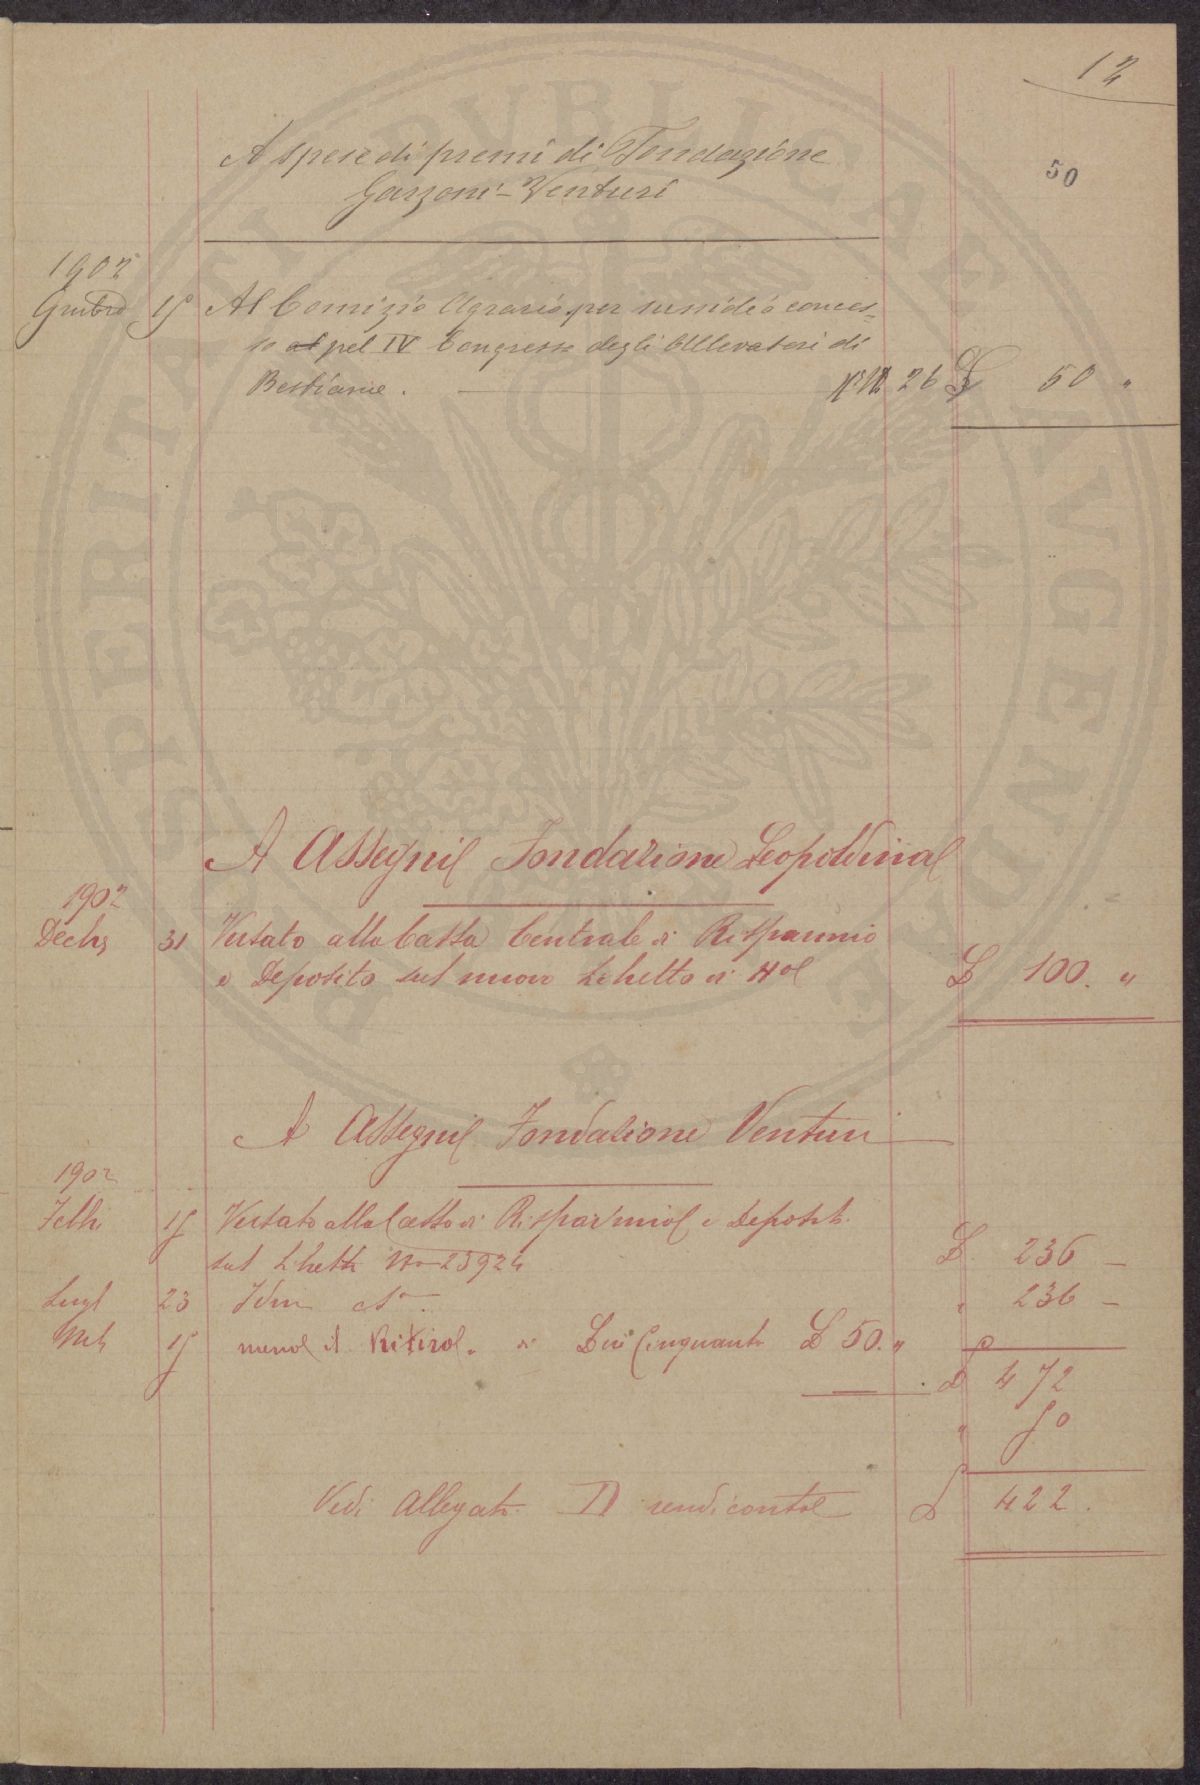 12
50
A spese di premi di Fondazione
Garzoni-Venturi
1902
15 Al Comizio Agrario per sussidio conces=
so al pel IV Congresso degli Allevatori di
Bestiame. 26 £ 50 "
A Assegni Fondazione Leopoldina
1902
Dechs 31 Versato alla Cassa Centrale di Risparmio
e Deposito sul nuovo Libretto di £ 100. "
A Assegni Fondazione Venturi
1902
Febb 15 Versato alla Cassa di Risparmio e Depositi
sul Libretto No 25924 £ 236 —
Lugl 23 Idem " 236 —
15 meno il Ritiro di Lire Cinquanta £ 50. "
£ 472
" 50
Vedi Allegato D rendiconto £ 422.
PROSPERITATI PVBLICAE AVGENDAE